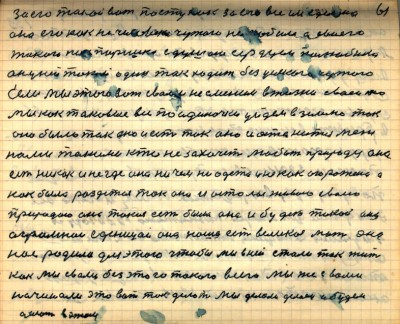 61
за его такой вот поступок за его все им сделано
она его как не человека чужого не любит а своего
такого не парищка с душою сердцем полюбила
он у ней такой один так ходит без всякого чужого
Если мы этого вот своего не сменим в жизни своей то
мы как таковые все по одиночки уйдем в землю так
оно было так оно и есть так оно и останется меж
нами такими кто не захочет любить природу она
есть никак и негде она ничем не одета она как огорожена
как была раздетая так она и осталась живого своею
природою она такая есть была она и будет такой она
огромная с денщой она наша есть великая мать она
нас родила для этого чтобы мы в ней стали так жить
как мы свами без этого такого всего мы же с вами
начинали это вот так делать мы делали делаем и будем
делать в этом